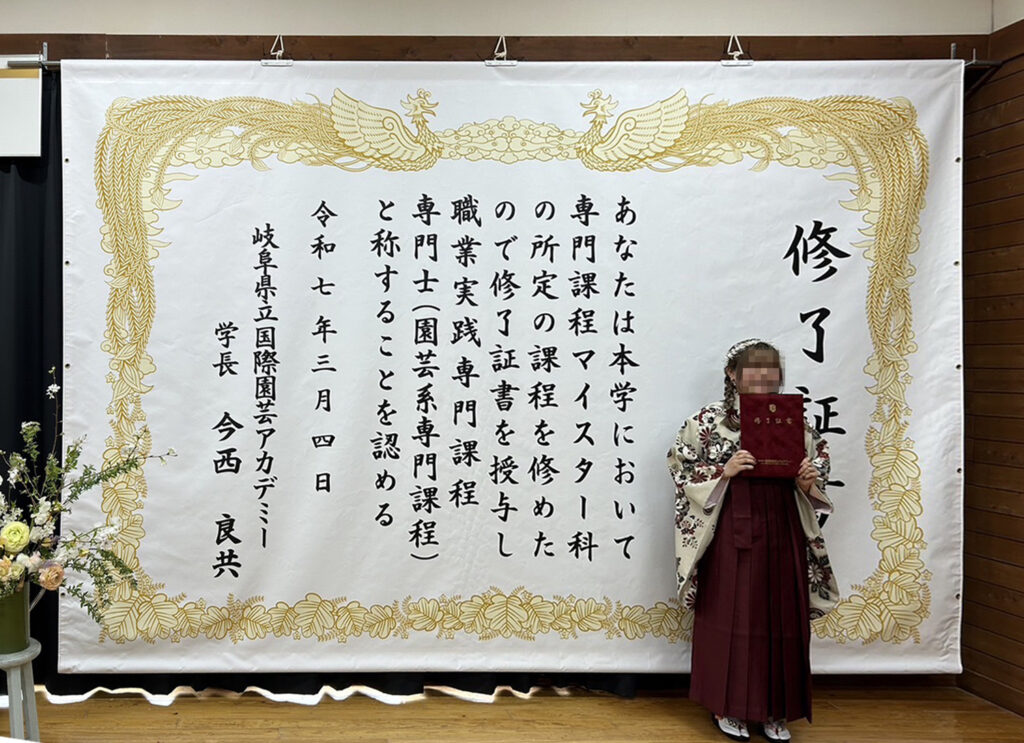 修了証
あなたは本学において
専門課程マイスター科
の所定の課程を修めた
ので修了証書を授与し
職業実践専門課程
専門士(園芸系専門課程)
と称することを認める
令和七年三月四日
岐阜県立国際園芸アカデミー
学長 今西 良共
修了証書